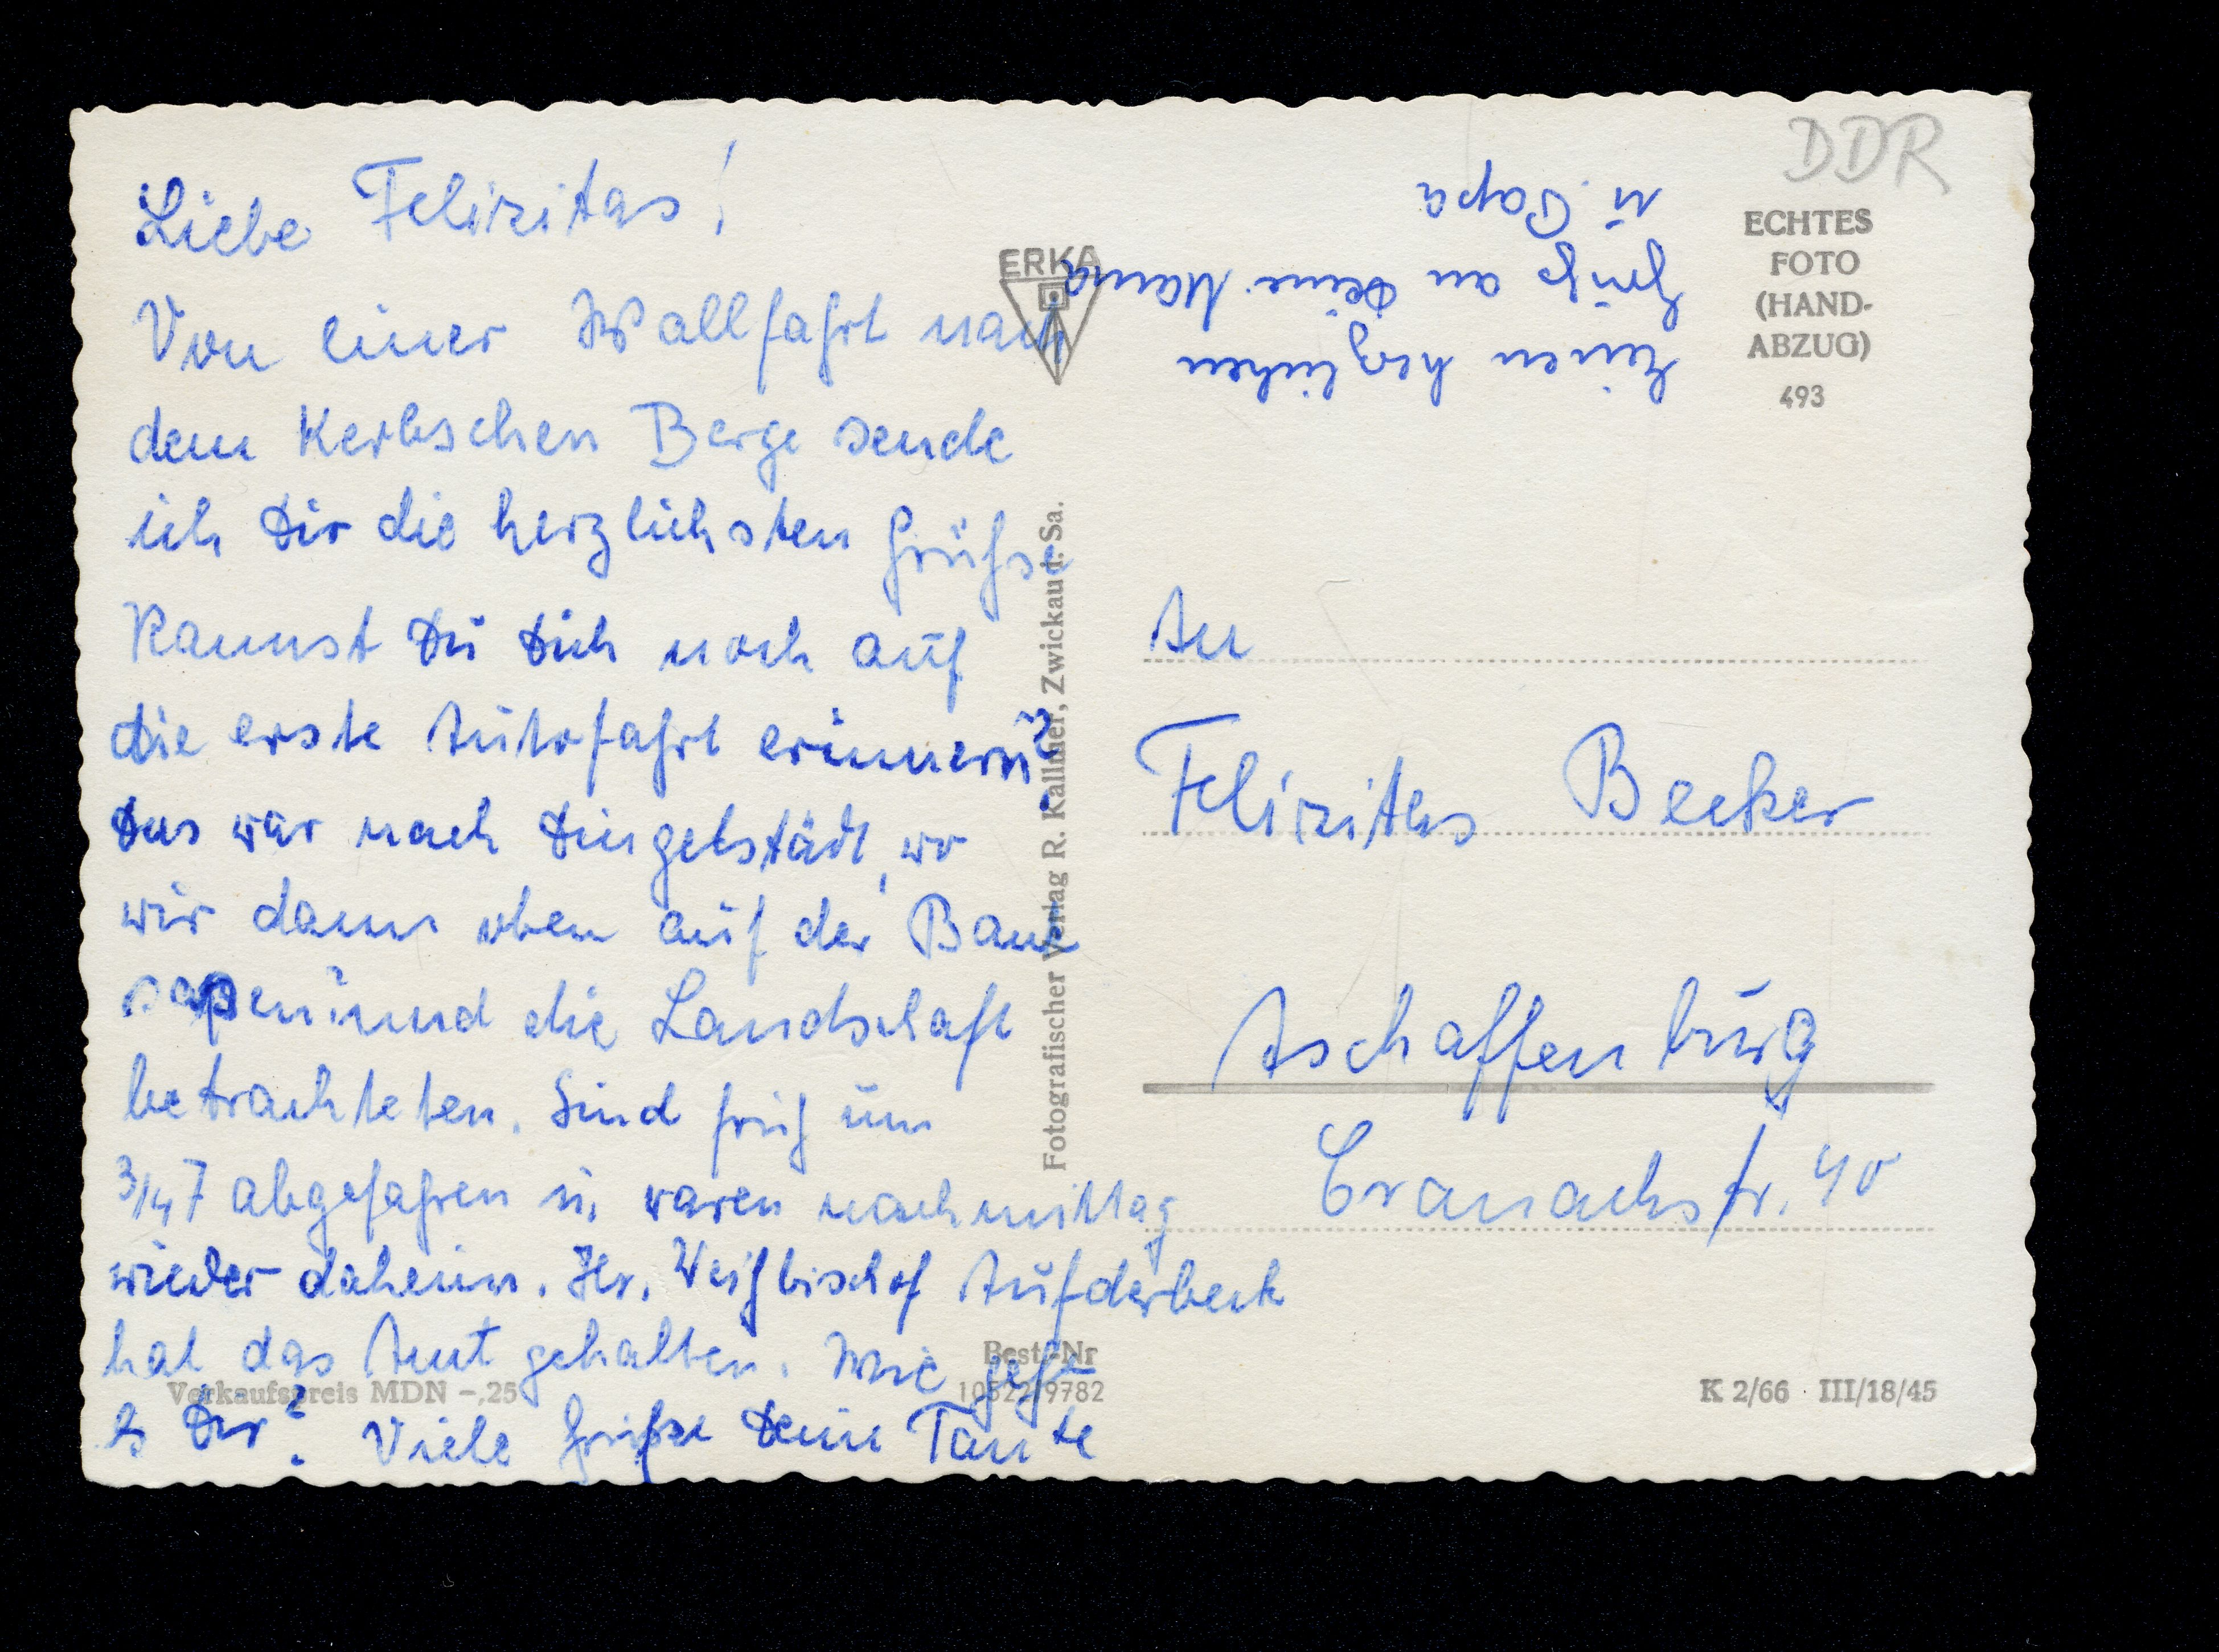 Liebe Felizitas!
Von einer Wallfahrt nach
dem Kerbschen Berge sende
ich Dir die herzlichsten Grüße
Kannst Du Dich noch auf
die erste Autofahrt erinnern?
Das war nach Dingelstädt, wo
wir dann oben auf der Bank
saßen und die Landschaft
betrachteten. Sind früh um
3/4 7 abgefahren u. waren nachmittag
wieder daheim. Hr. Weihbischof Aufderbeck
hat das Amt gehalten. Wie geht
es Dir? Viele Grüße Deine Tante
Einen herzlichen
Gruß an Deine Mama
u. Papa
DDR
ECHTES
FOTO
(HAND-
ABZUG)
493
ERKA
Fotografischer Verlag R. Kallmer, Zwickau i. Sa.
An
Felizitas Becker
Aschaffenburg
Cranachstr. 40
Verkaufspreis MDN -,25
Best.-Nr
K 2/66 III/18/45